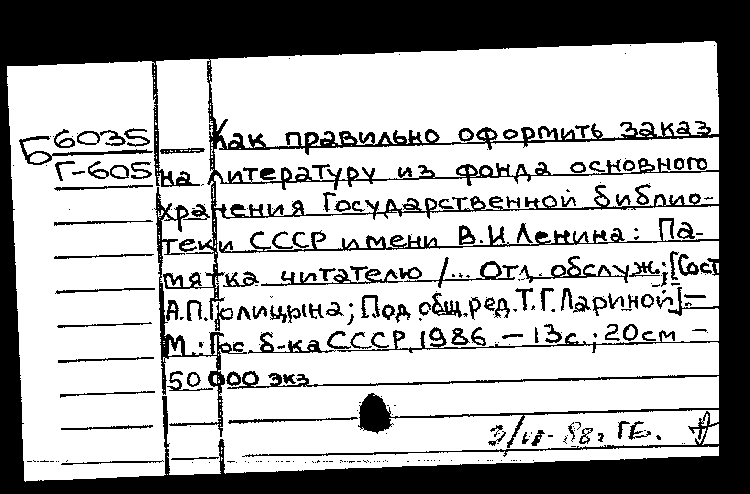 Б 6035
Г-605
Как правильно оформить заказ
на литературу из фонда основного
хранения Государственной библио-
теки СССР имени В.И.Ленина: Па-
мятка читателю /... Отд. обслуж.; [Сост.
А.П.Голицына; Под общ.ред.Т.Г.Лариной]. —
М.: Гос. б-ка СССР, 1986. — 13с.; 20см —
50 000 экз.
3/VI-88г ГБ.